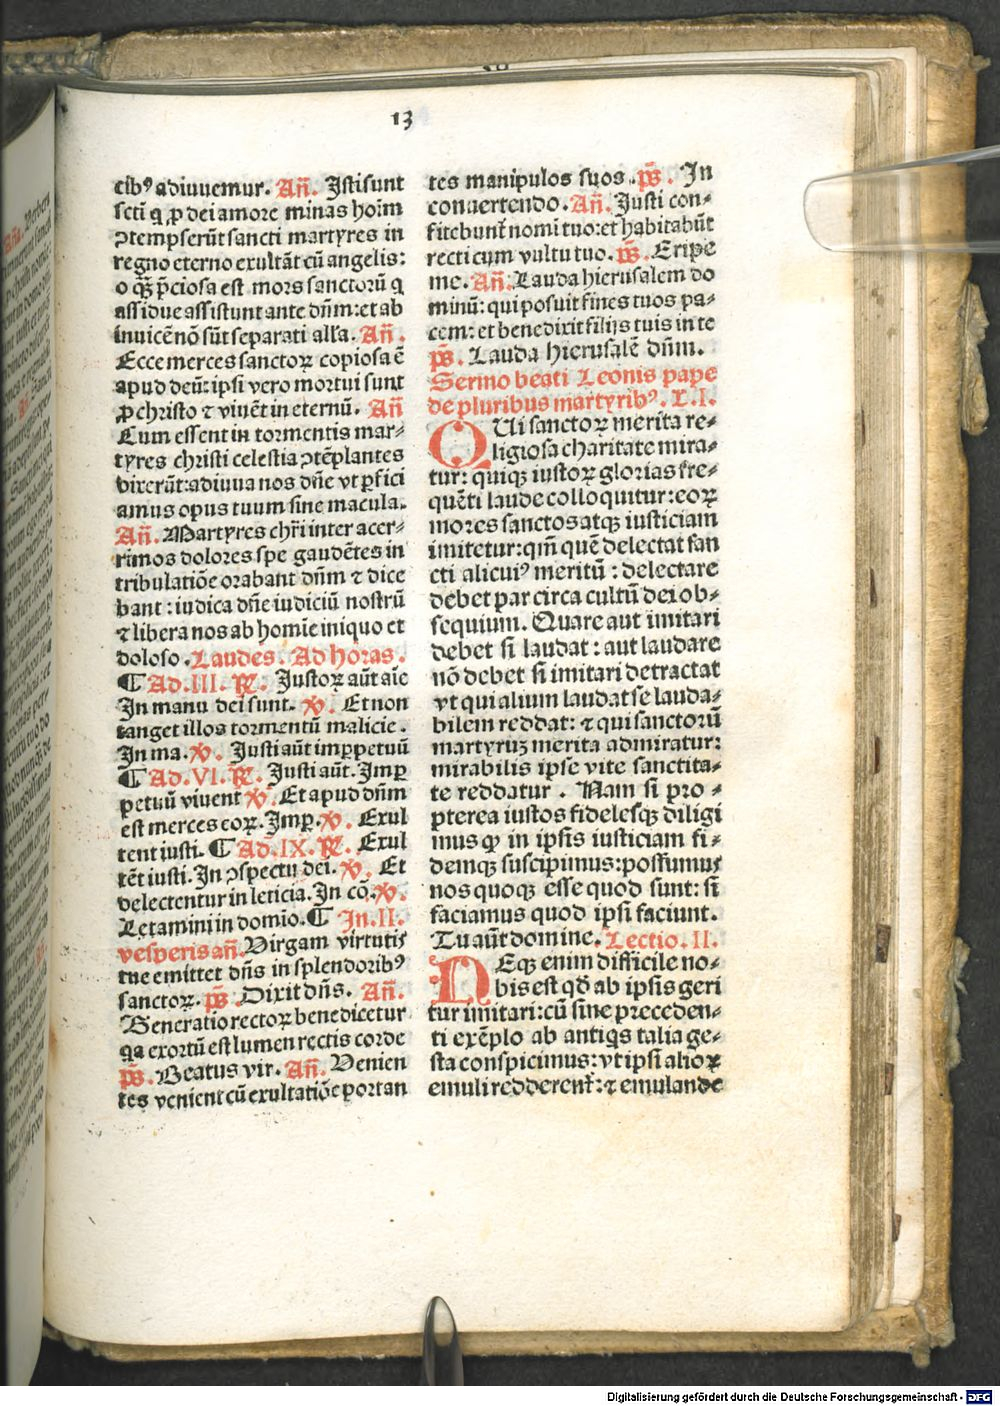 13
cibꝰ adiuuemur. Añ. Iusti sunt
scti q̃ ꝓ dei amore minas hoĩm
ꝯtempserũt sancti martyres in
regno eterno exultãt cũ angelis:
o q̃ꝫ p̃ciosa est mors sanctorũ q
assidue assistunt ante dñm: et ab
inuicẽ nõ sũt separati alľa. Añ.
Ecce merces sanctoꝝ copiosa ẽ
apud deũ: ipsi vero mortui sunt
ꝓ christo ⁊ viuẽt in eternũ. Añ
Cum essent in tormentis mar⸗
tyres christi celestia ꝯtẽplantes
dixerũt: adiuua nos dñe vt ꝑfici
amus opus tuum sine macula.
Añ. Martyres chr̃i inter acer⸗
rimos dolores spe gaudẽtes in
tribulatiõe orabant dñm ⁊ dice
bant: iudica dñe iudiciũ nostrũ
⁊ libera nos ab homĩe iniquo et
doloso. Laudes. Ad horas.
¶ Ad. III. ℟. Iustoꝝ aũt aĩe
In manu dei sunt. ℣. Et non
tanget illos tormentũ malicie.
In ma. ℣. Iusti aũt imꝑpetuũ
¶ Ad. VI. ℟. Iusti aũt. Imꝑ
petuũ viuent ℣. Et apud dñm
est merces eoꝝ. Imꝑ. ℣. Exul
tent iusti. ¶ Ad. IX. ℟. Exul
tẽt iusti. In ꝯspectu dei. ℣. Et
delectentur in leticia. In cõ. ℣.
Letamini in domio. ¶ In. II.
vesperis añ. Virgam virtutis
tue emittet dñs in splendoribꝰ
sanctoꝝ. p̃s. Dixit dñs. Añ.
Generatio rectoꝝ benedicetur
qa exortũ est lumen rectis corde
p̃s. Beatus vir. Añ. Venien
tes venient cũ exultatiõe portan
tes manipulos suos. p̃s. In
conuertendo. Añ. Iusti con⸗
fitebunt̃ nomi tuo: et habitabũt
recti cum vultu tuo. p̃s. Eripe
me. Añ. Lauda hierusalem do
minũ: qui posuit fines tuos pa⸗
cem: et benedixit filijs tuis in te
p̃s. Lauda hierusalẽ dñm.
Sermo beati Leonis pape
de pluribus martyribꝰ. L. I.
QUi sanctoꝝ merita re⸗
ligiosa charitate mira⸗
tur: quiqꝫ iustoꝝ glorias fre⸗
quẽti laude colloquitur: eoꝝ
mores sanctos atqꝫ iusticiam
imitetur: qm̃ quẽ delectat san
cti alicuiꝰ meritũ: delectare
debet par circa cultũ dei ob⸗
sequium. Quare aut imitari
debet si laudat: aut laudare
nõ debet si imitari detractat
vt qui alium laudat se lauda⸗
bilem reddat: ⁊ qui sanctorũ
martyruꝫ merita admiratur:
mirabilis ipse vite sanctita⸗
te reddatur. Nam si pro⸗
pterea iustos fidelesqꝫ diligi
mus ꝙ in ipsis iusticiam fi⸗
demqꝫ suscipimus: possumus
nos quoqꝫ esse quod sunt: si
faciamus quod ipsi faciunt.
Tu aũt domine. Lectio. II.
NEqꝫ enim difficile no⸗
bis est qd̃ ab ipsis geri
tur imitari: cũ sine preceden⸗
ti exẽplo ab antiqs talia ge⸗
sta conspicimus: vt ipsi alioꝝ
emuli redderent̃: ⁊ emulande
Digitalisierung gefördert durch die Deutsche Forschungsgemeinschaft - DFG